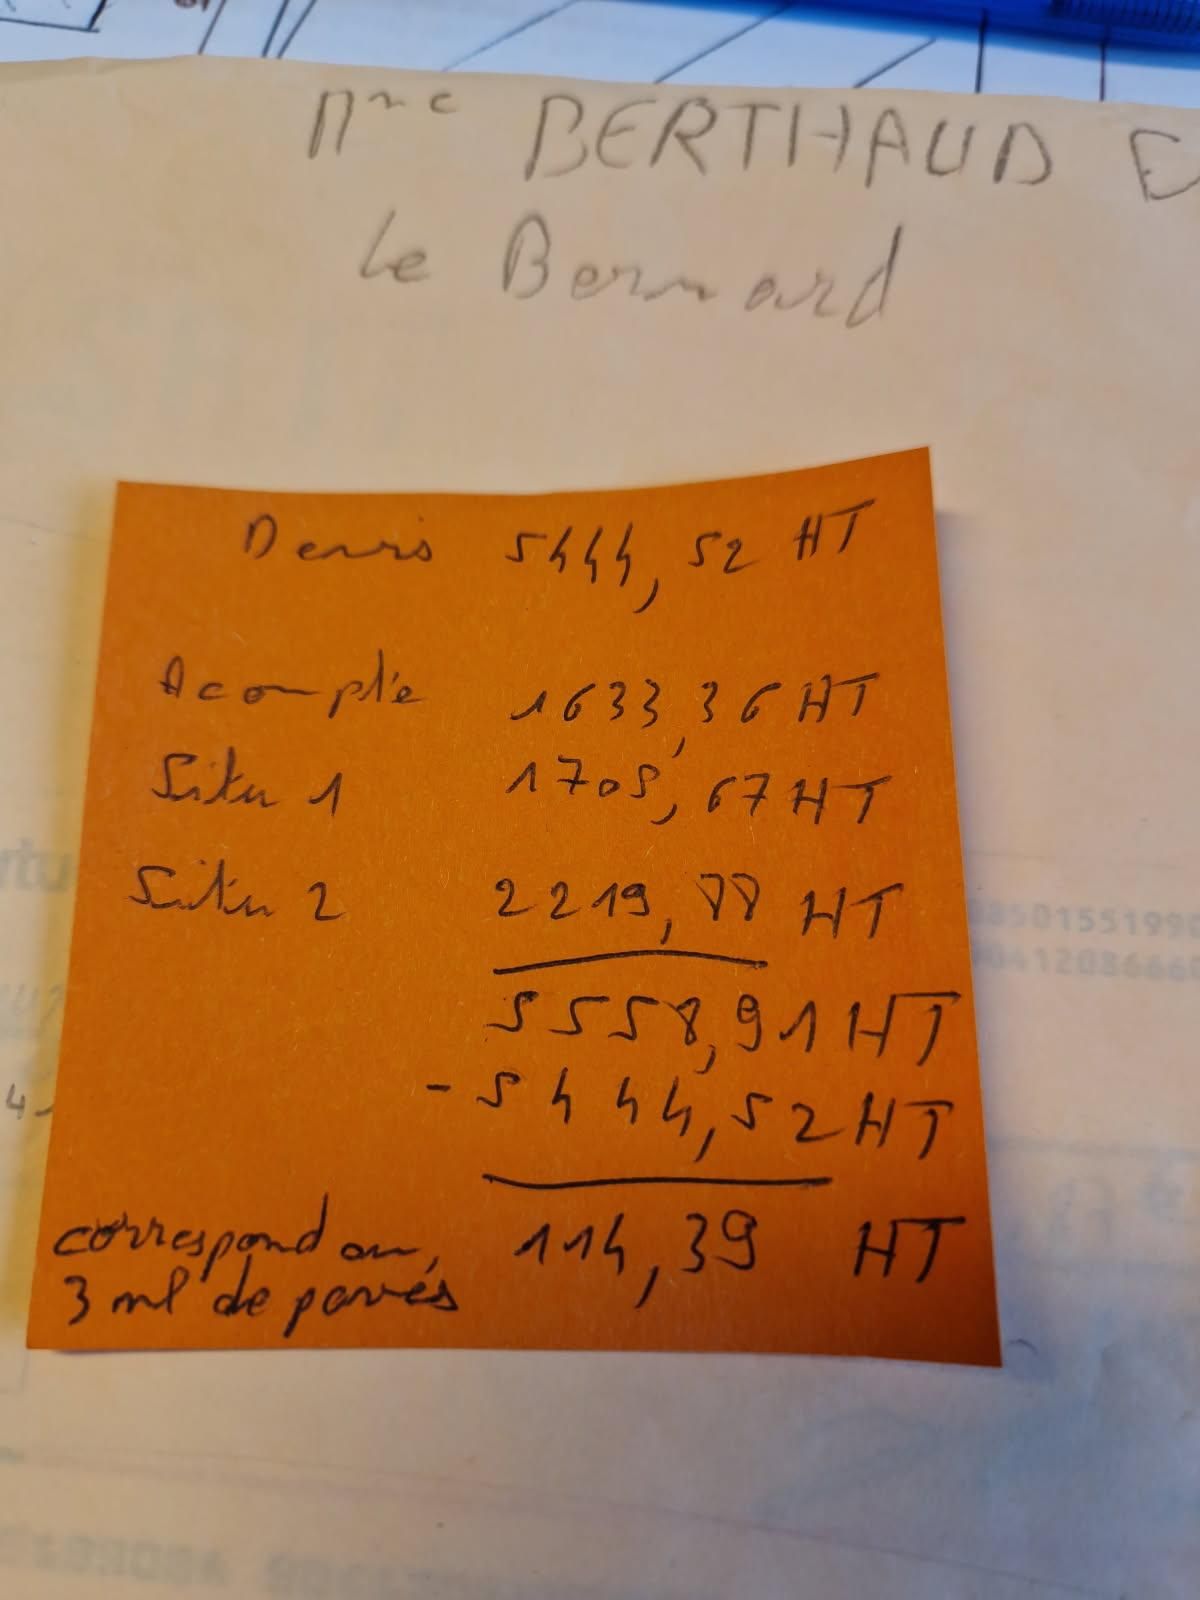 Mme BERTHAUD E
Le Bernard
Devis 5444,52 HT
Acompte 1633,36 HT
Situ 1 1705,67 HT
Situ 2 2219,88 HT
5558,91 HT
- 5444,52 HT
correspond au, 114,39 HT
3 ml de pavés
8501551990
90412086660
4-